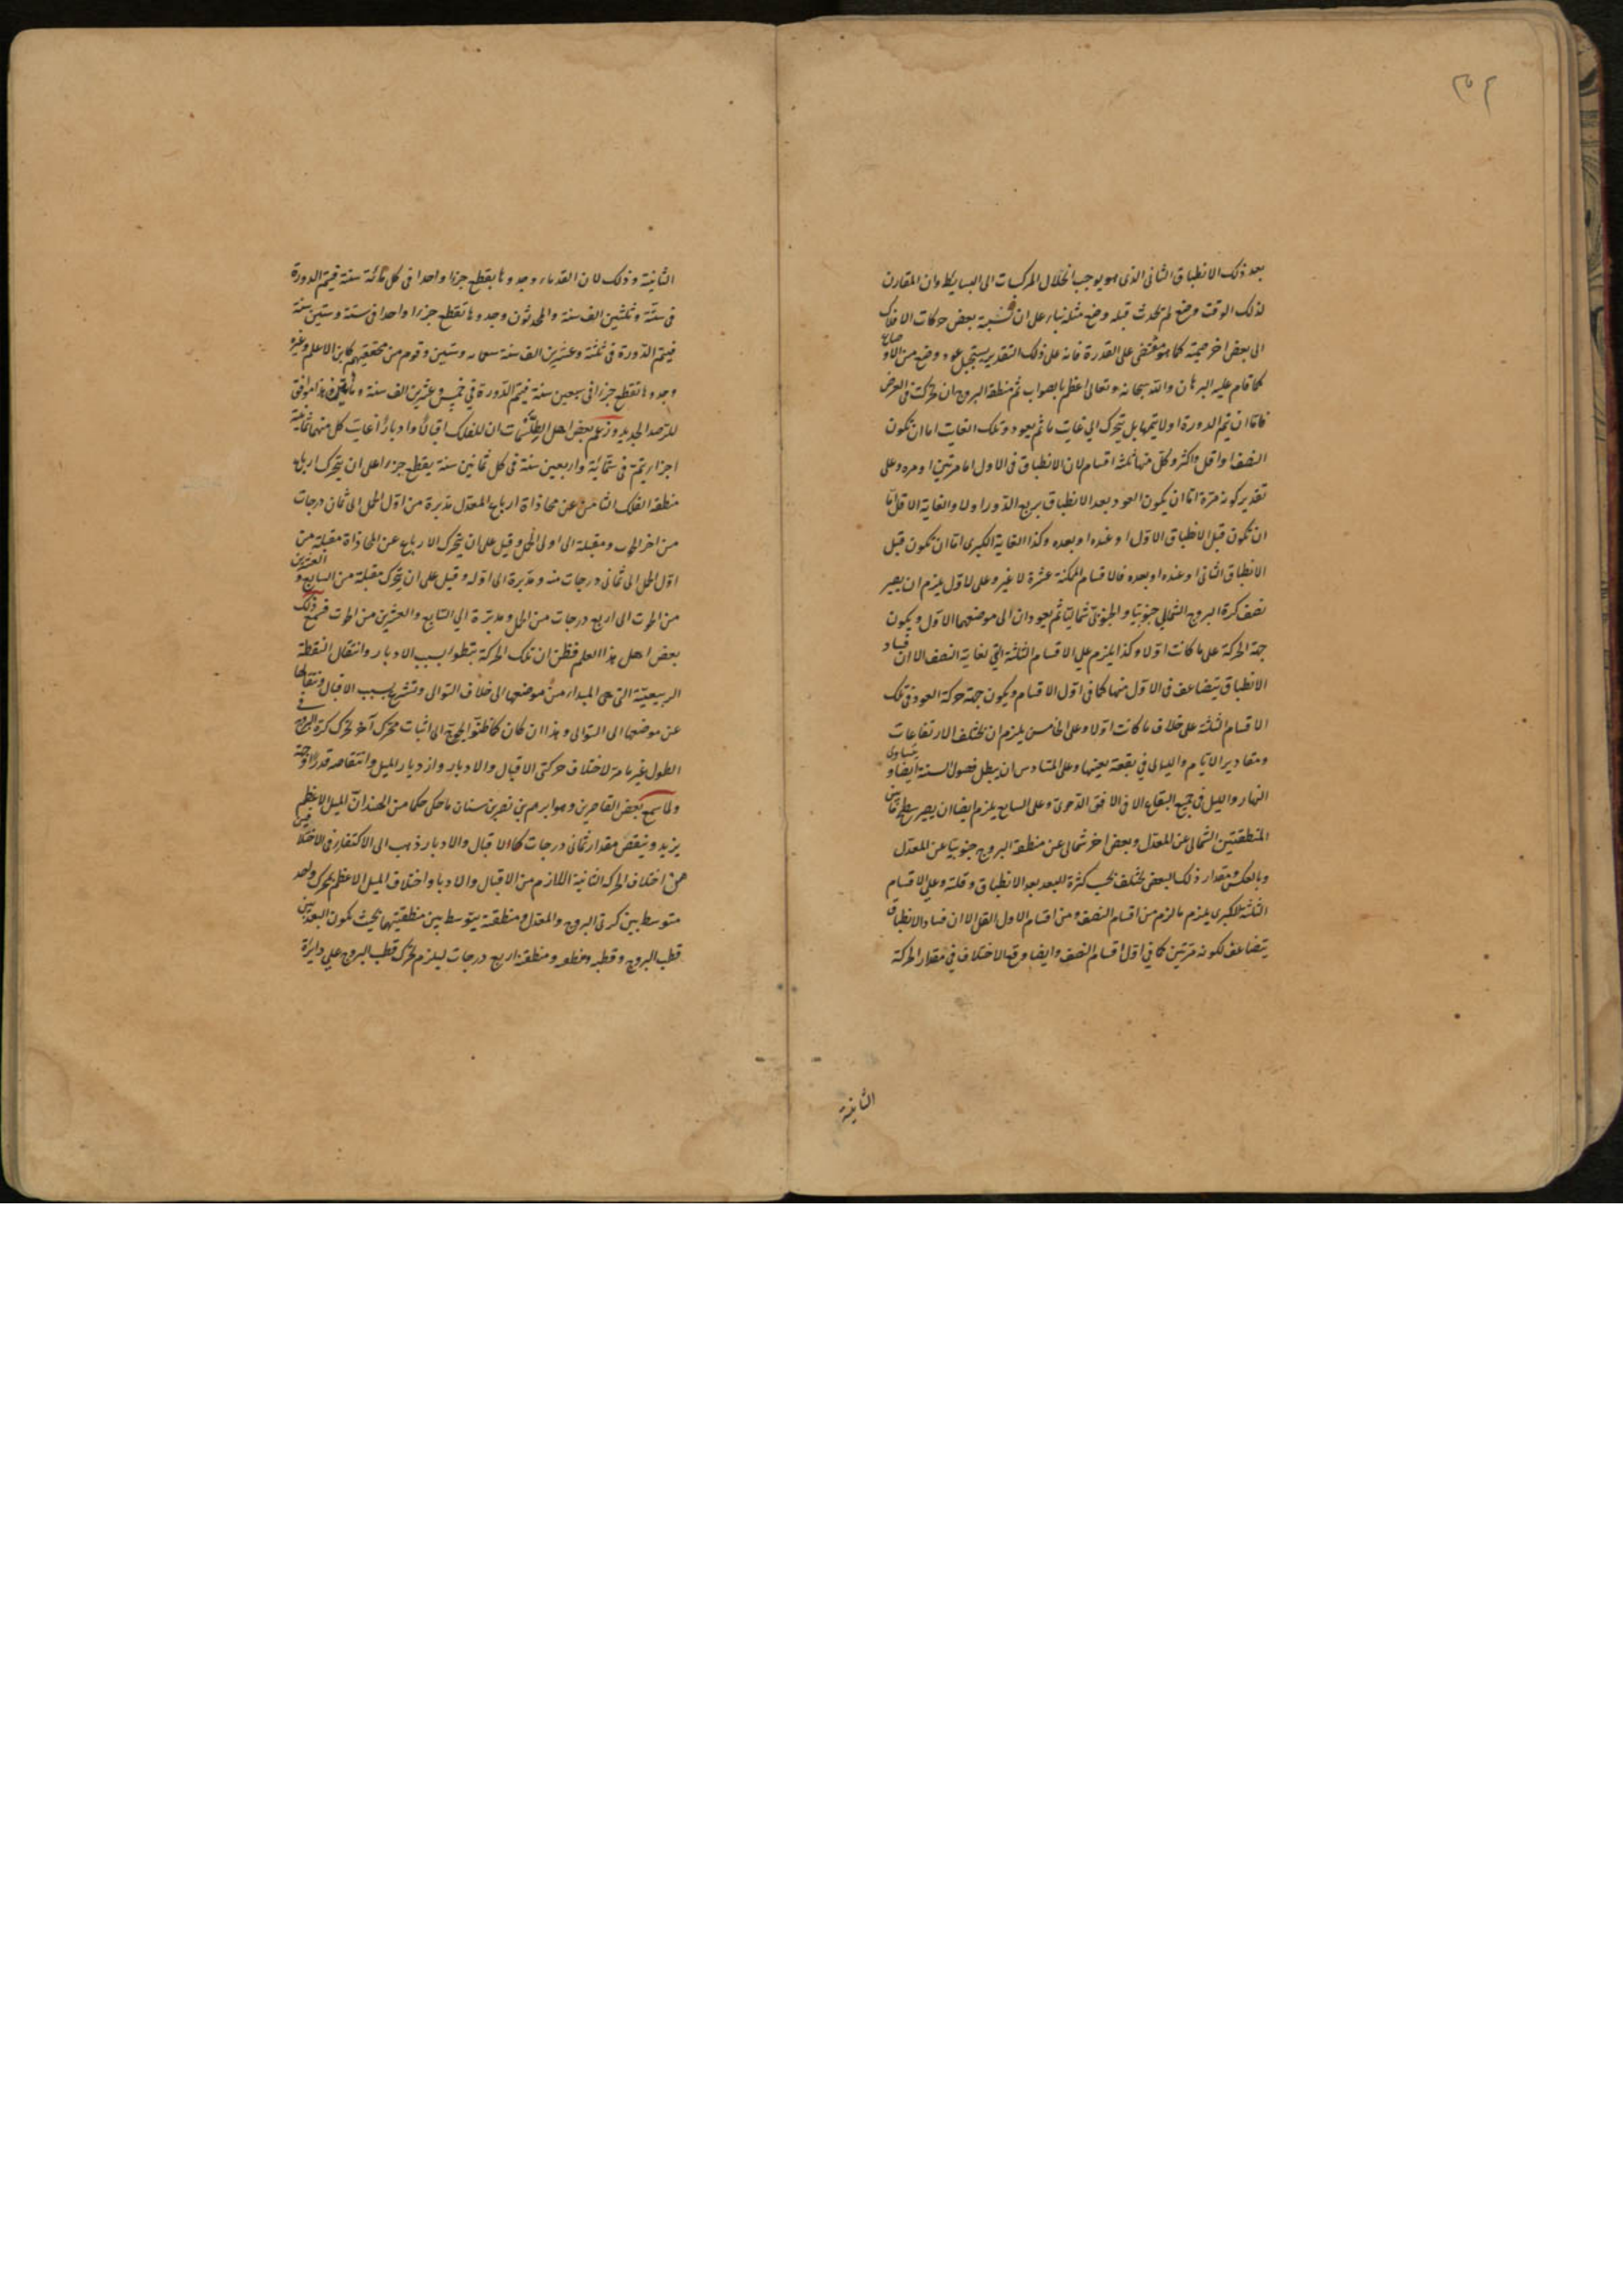 ٣٥٢
بعد ذلك الانطباق الثانى الذى هو يوجب انحلال المركبات الى البسايط وان المقارن
لذلك الوقت وضع لم يحدث قبله وضع مثله بناء على ان نسبة بعض حركات الافلاك
الى بعض اخر صمية كما هو مقتضى على القدرة فانه على ذلك التقدير يستحيل عود وضع من الاوضاع
كما قام عليه البرهان والله سبحانه وتعالى اعلم بالصواب ثم منطقة البروج ان تحركت فى العرض
فاما ان يتم الدورة او لا يتمها بل يتحرك الى غايت ما ثم يعود وتلك الغايت اما ان تكون
النصف او اقل او اكثر وكل منها ثلثة اقسام لان الانطباق فى الاول اما مرتين او مرة وعلى
تقدير كونه مرة اما ان يكون العود بعد الانطباق بربع الدور او لا والغاية الاقل اما
ان تكون قبل الانطباق الاول او عنده او بعده وكذا الغاية الكبرى اما ان تكون قبل
الانطباق الثانى او عنده او بعده فالاقسام الممكنة عشرة لا غير وعلى الاول يلزم ان يصير
نصف كرة البروج الشمالى جنوبيا والجنوبى شماليا ثم يعودان الى موضعهما الاول ويكون
جهة الحركة على ما كانت اولا وكذا يلزم على الاقسام الثلثة التى لغاية النصف الا ان فساد
الانطباق يتضاعف فى الاول منها كما فى اول الاقسام ويكون جهة حركة العود فى تلك
الاقسام الثلثة على خلاف ما كانت اولا وعلى الخامس يلزم ان يختلف الارتفاعات
ومقادير الايام والليالى فى بقعة بعينها وعلى السادس ان يبطل فصول السنة ايضا ويتساوى
النهار والليل فى جميع البقاع الا فى الافق الرحوى وعلى السابع يلزم ايضا ان يصير سطح ما بين
المنطقتين الشمالى عن المعدل وبعض اخر شمالى عن منطقة البروج جنوبيا عن المعدل
وبالعكس ومقدار ذلك البعض يختلف بحسب كثرة البعد بعد الانطباق وقلته وعلى الاقسام
الثلثة الكبرى يلزم ما لزم من اقسام النصف ومن اقسام الاول اقل الا ان فساد الانطباق
يتضاعف لكونه مرتين كما فى اول اقسام النصف وايضا وقع الاختلاف فى مقدار الحركة
الثانية
الثانية وذلك لان القدماء وجدوها يقطع جزءا واحدا فى كل مائة سنة فيتم الدورة
فى ستة وثلثين الف سنة والمحدثون وجدوها تقطع جزءا واحدا فى ستة وستين سنة
فيتم الدورة فى ثلثة وعشرين الف سنة سبعمائه وستين وقوم من محققيهم كابن الاعلم وغيره
وجدوها تقطع جزءا فى سبعين سنة فيتم الدورة فى خمس وعشرين الف سنة ومأتين وهذا موافق
للرصد الجديد وزعم بعض اهل الطلسمات ان للفلك اقبالا وادبارا غايت كل منهما ثمانية
اجزاء يتم فى ستمائة واربعين سنة فى كل ثمانين سنة يقطع جزءا على ان يتحرك ارباع
منطقة الفلك الثامن عن محاذاة ارباع المعدل مدبرة من اول الحمل الى ثمان درجات
من اخر الحوت ومقبلة الى اولى الحمل وقيل على ان يتحرك الارباع عن المحاذاة مقبلة من
اول الحمل الى ثمانى درجات منه ومدبرة الى اوله وقيل على ان يتحرك مقبلة من السابع والعشرين
من الحوت الى اربع درجات من الحمل ومدبرة الى السابع والعشرين من الحوت فسمع ذلك
بعض اهل هذا العلم فظن ان تلك الحركة تبطؤ بسبب الادبار وانتقال النقطة
الربيعية التى هى المبدء من موضعها الى خلاف التوالى وتسرع بسبب الاقبال وانتقالها
عن موضعها الى التوالى وهذا ان كان كما ظنوا يحوج الى اثبات محرك آخر يحرك كرة البروج فى
الطول غير تامة لاختلاف حركتى الاقبال والادبار وازدياد الميل وانتقاصه قدرا وجهة
ولما سمع بعض القاصرين وهو ابرهيم بن نصر بن سنان ما حكى حكما من الهند ان الميل الاعظم
يزيد وينقص مقدار ثمانى درجات كما الاقبال والادبار ذهب الى الاكتفاء فى الاختلافين
من اختلاف الحركة الثانية اللازم من الاقبال والادبار واختلاف الميل الاعظم بمحرك واحد
متوسط بين كرتى البروج والمعدل ومنطقته يتوسط بين منطقتيهما بحيث تكون البعد بين
قطب البروج وقطبه ومنطقته ومنطقته اربع درجات ليلزم تحرك قطب البروج على دايرة